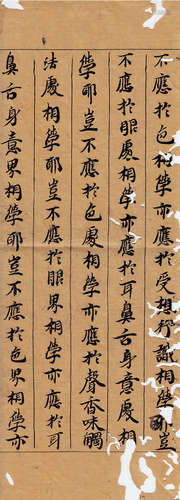 不應於色相學亦應於受想行識相學耶豈
不應於眼處相學亦應於耳鼻舌身意處相
學耶豈不應於色處相學亦應於聲香味觸
法處相學耶豈不應於眼界相學亦應於耳
鼻舌身意界相學耶豈不應於色界相學亦